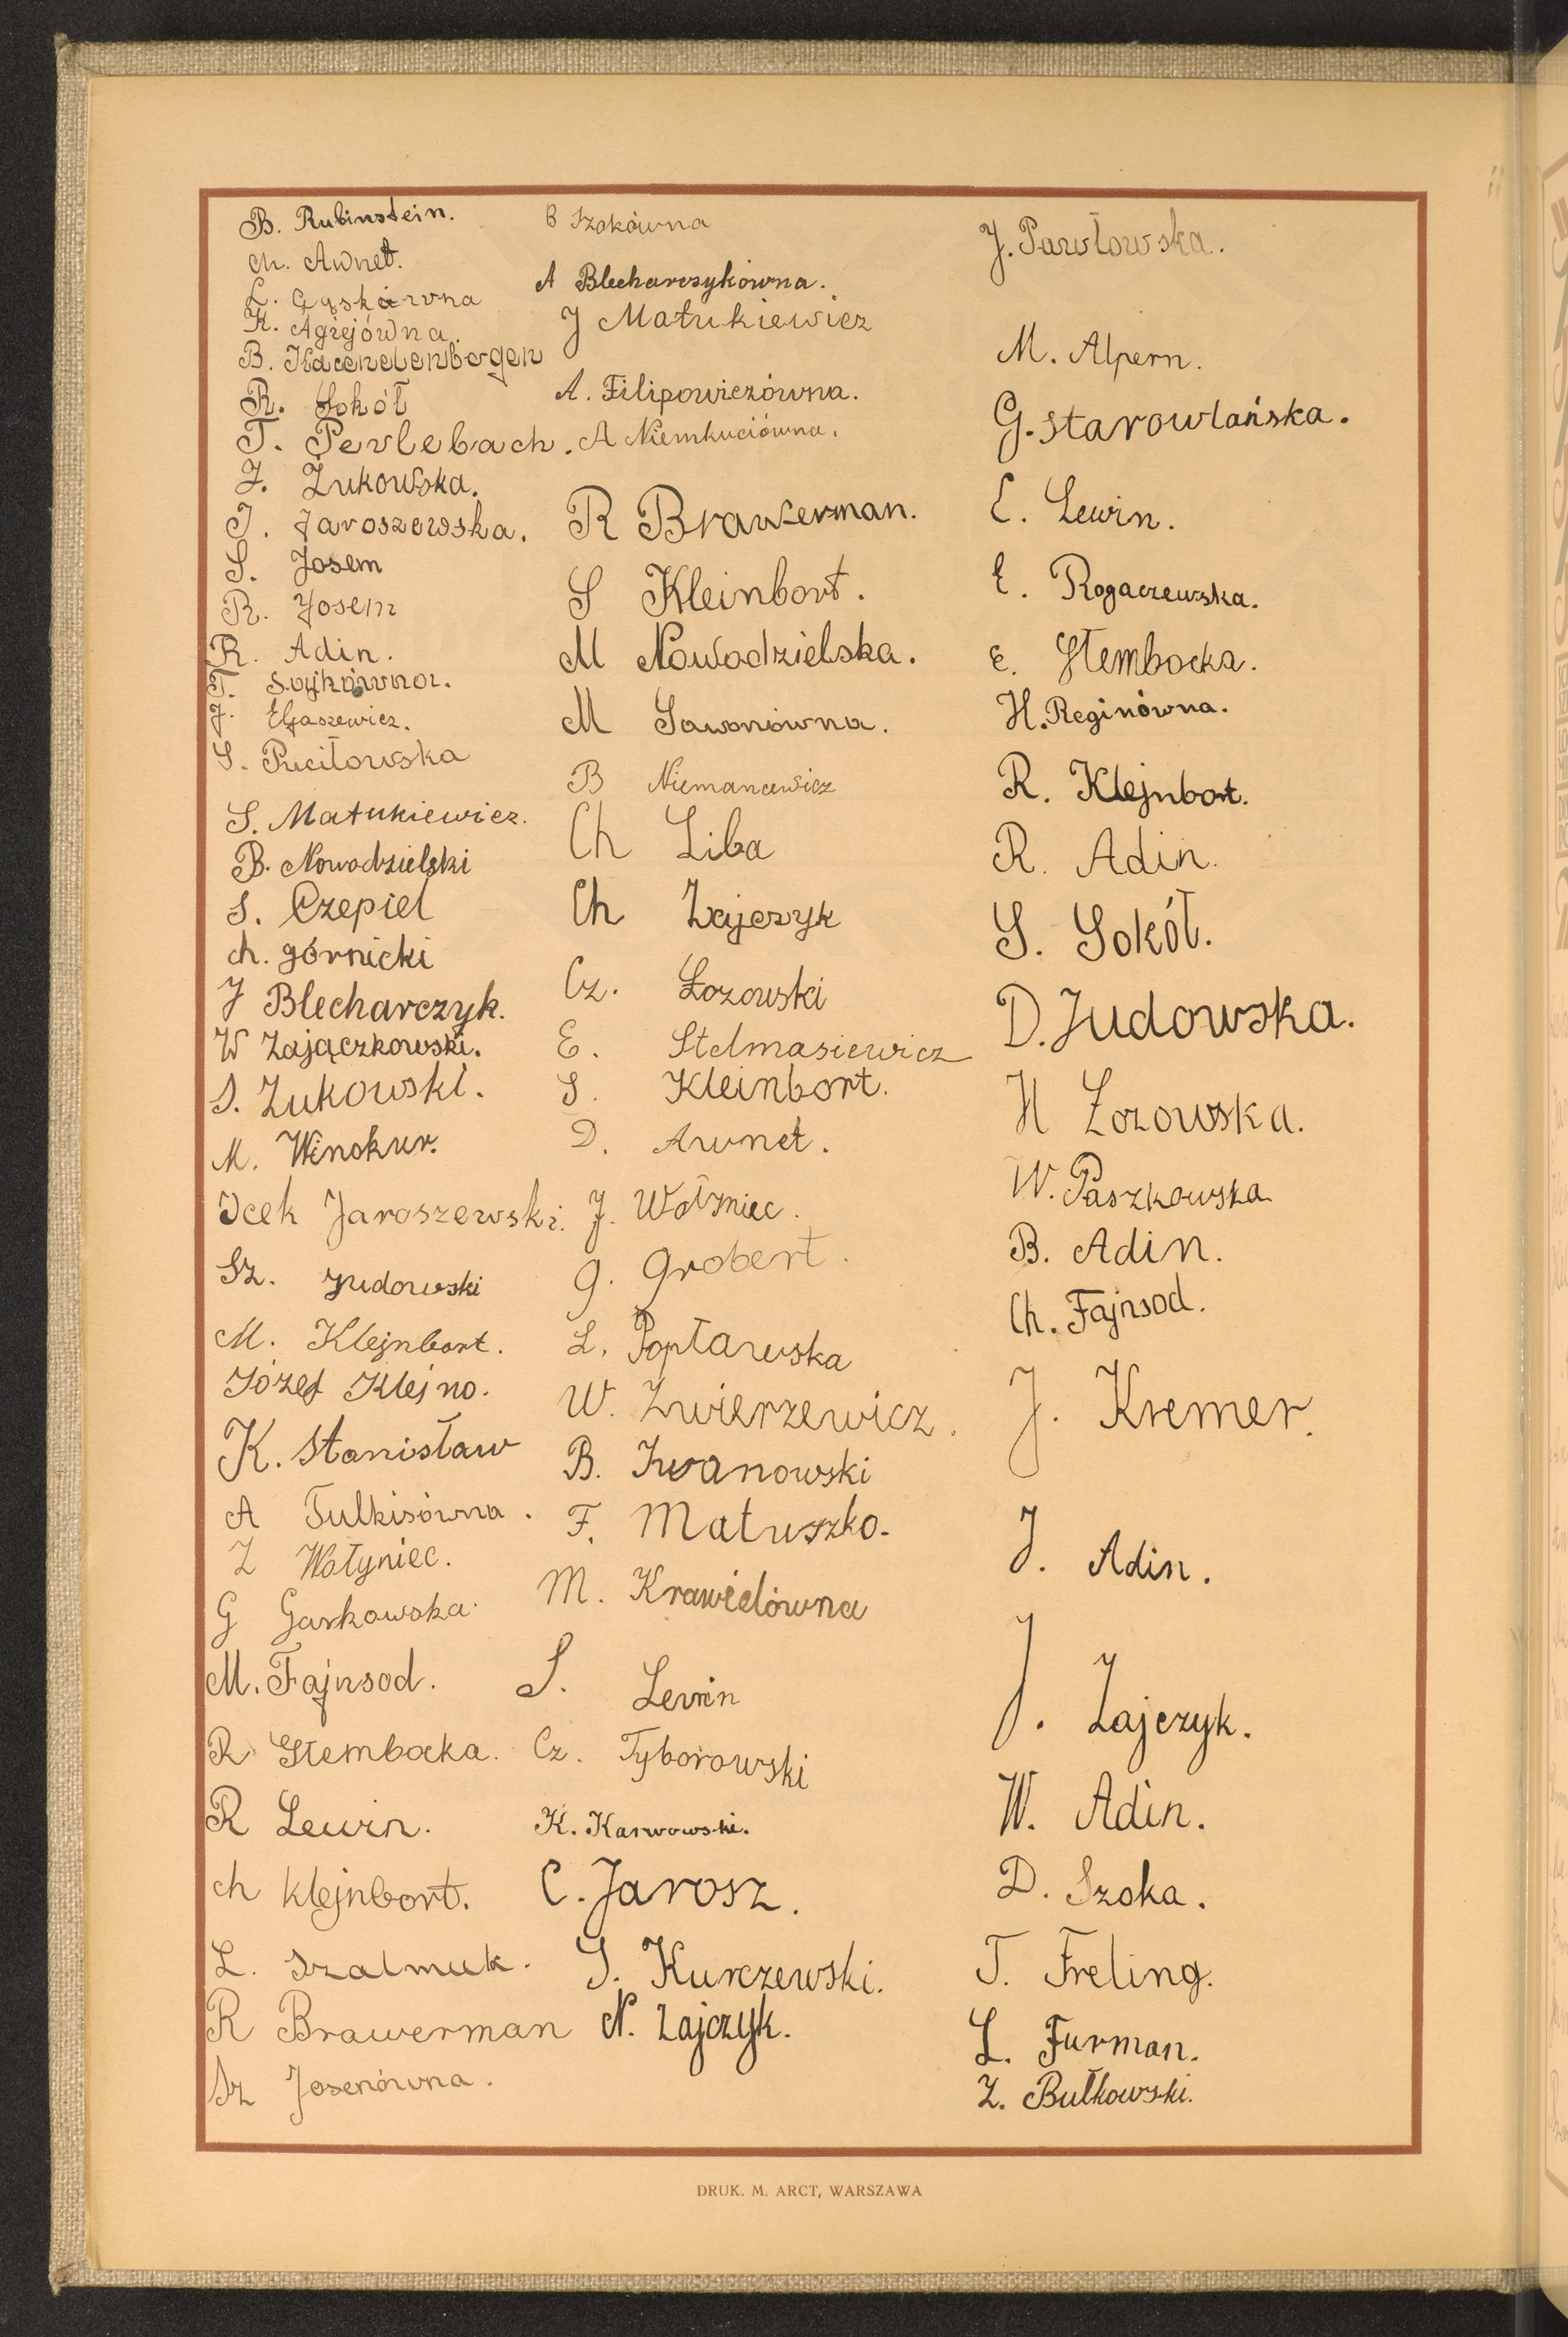 B. Rubinstein.
Ch. Awnet.
L. Gąskówna
K. Agiejówna.
B. Kacenelenbogen
R. Sokół
T. Perlebach.
J. Żukowska.
J. Jaroszewska.
S. Josem
R. Josem
R. Adin.
T. Sojkówna.
J. Eljaszewicz.
S. Puciłowska
S. Matukiewicz.
B. Nowodzielski
S. Czepiel
Ch. górnicki
J Blecharczyk.
W Zajączkowski.
S. Żukowski.
M. Winokur.
Icek Jaroszewski.
Sz. Judowski
M. Klejnbort.
Józef Klejno.
K. Stanisław
A Tulkisówna.
Z Wołyniec.
G Garkowska.
M. Fajnsod.
R Stembocka.
R Lewin.
Ch Klejnbort.
L. Szalmuk.
R Brawerman
Sz Josenówna.
B Szokówna
A Blecharczykówna.
J Matukiewicz
A. Filipowiczówna.
A Niemkuciówna.
R Brawerman.
S Kleinbort.
M Nowodzielska.
M Sawoniówna.
B Niemancewicz
Ch Liba
Ch Zajczyk
Cz. Łozowski
E. Stelmasiewicz
S. Kleinbort.
D. Awnet.
J. Wołzniec.
G. Grobert.
L. Popławska
W. Zwierzewicz.
B. Iwanowski
F. Matuszko.
M. Krawielówna
S. Lewin
Cz. Tyborowski
K. Karwowski.
C. Jarosz.
S. Kurczewski.
N. Zajczyk.
J. Pawłowska.
M. Alpern.
G. Starowlańska.
E. Lewin.
E. Rogaczewska.
E. Stembocka.
H. Reginówna.
R. Klejnbort.
R. Adin.
S. Sokół.
D. Judowska.
H Łozowska.
W. Paszkowska
B. Adin.
Ch. Fajnsod.
J. Kremer.
J. Adin.
J. Zajczyk.
W. Adin.
D. Szoka.
T. Freling.
L. Furman.
Z. Bułkowski.
DRUK. M. ARCT, WARSZAWA